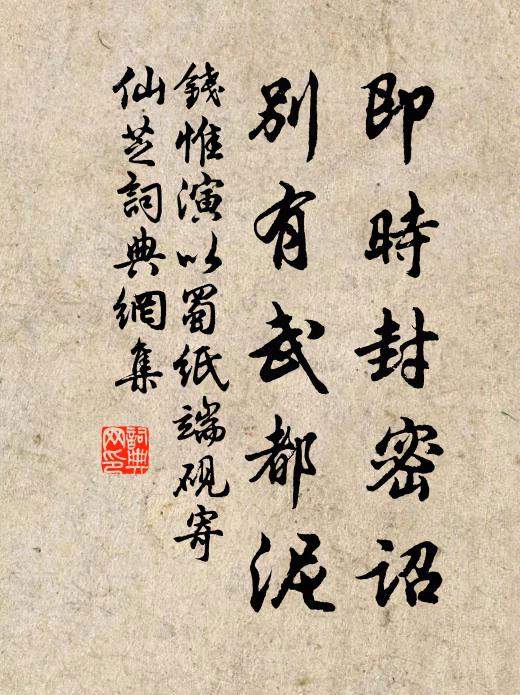 即時封密詔
別有武都泥
錢惟演以蜀紙端硯寄
仙芝詞典網集
詞典
网印